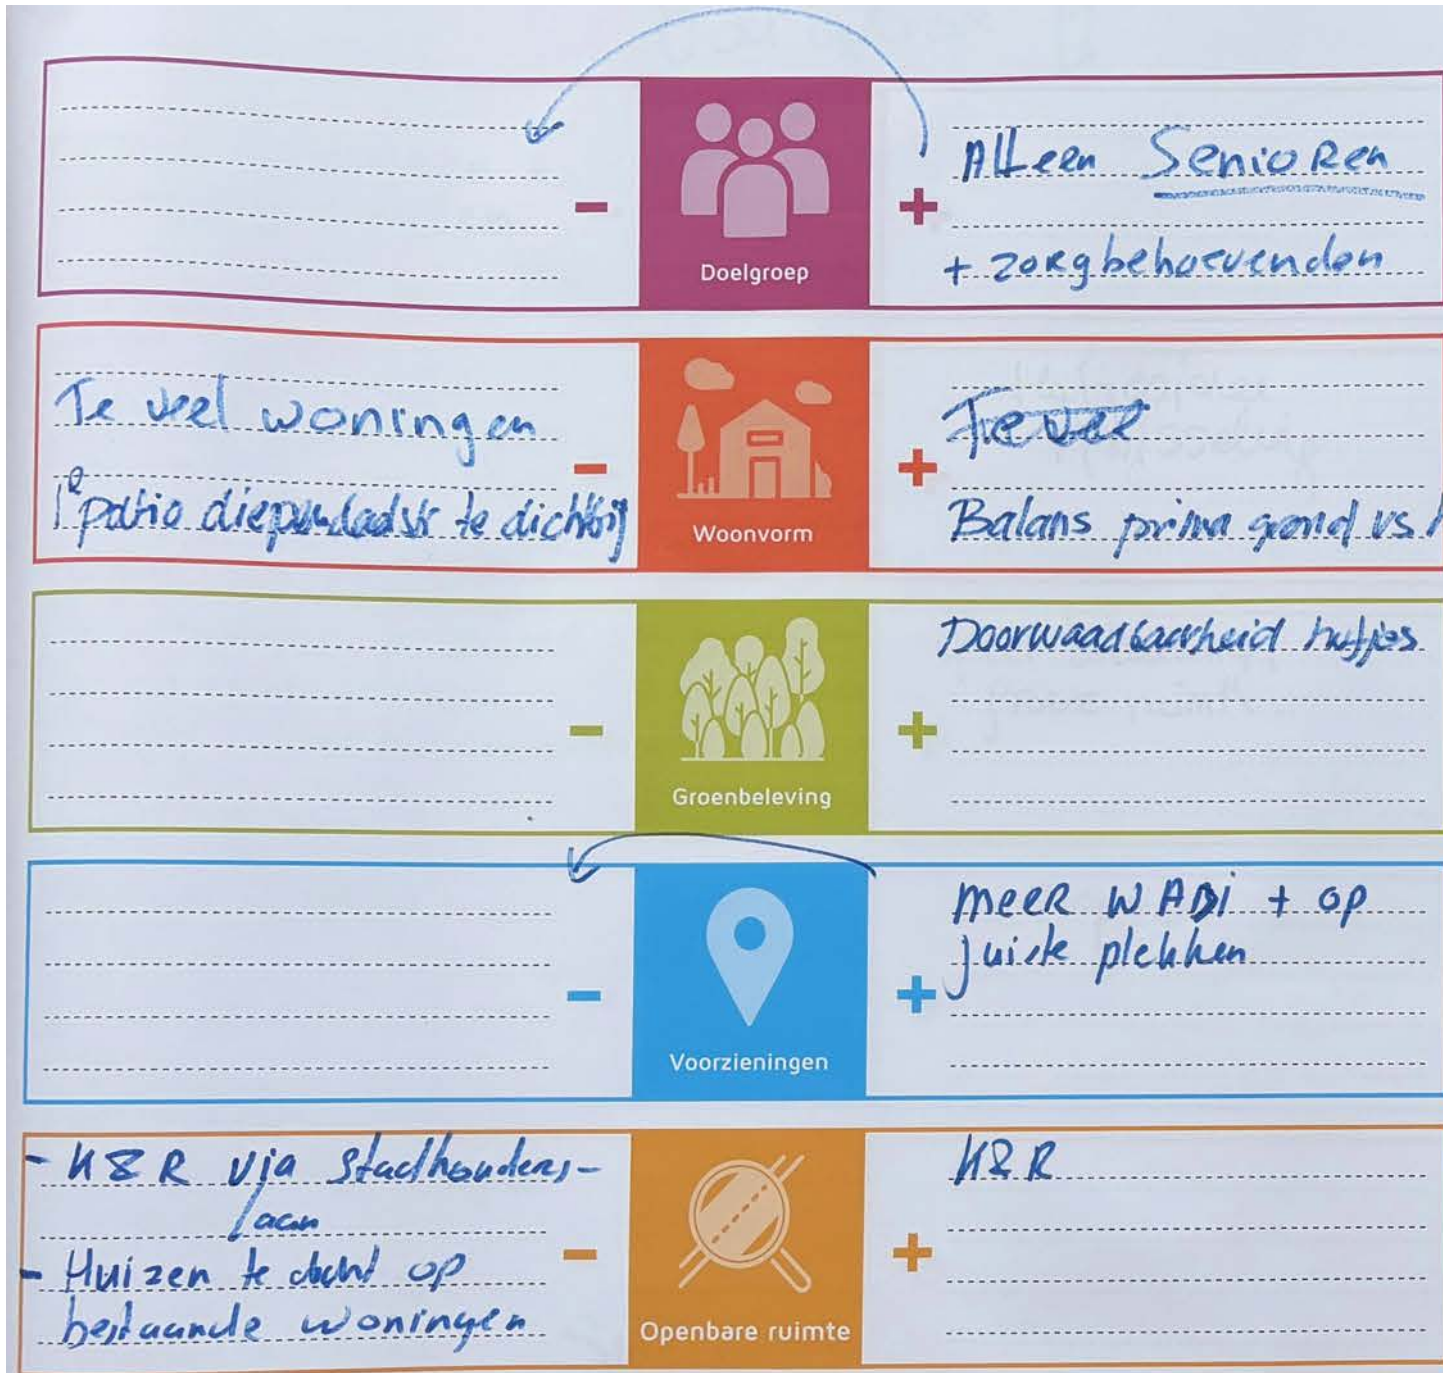 Doelgroep
-
+
Alleen Senioren
+ zorgbehoevenden
Te veel woningen
1e patio diependaalstr te dichtbij
-
Woonvorm
+
Balans prima grond vs
-
Groenbeleving
+
Doorwaadbaarheid hofjes
-
Voorzieningen
+
meer WADi + op
juiste plekken
- K&R via Stadhouders-
laan
- Huizen te dicht op
bestaande woningen
-
Openbare ruimte
+
K&R